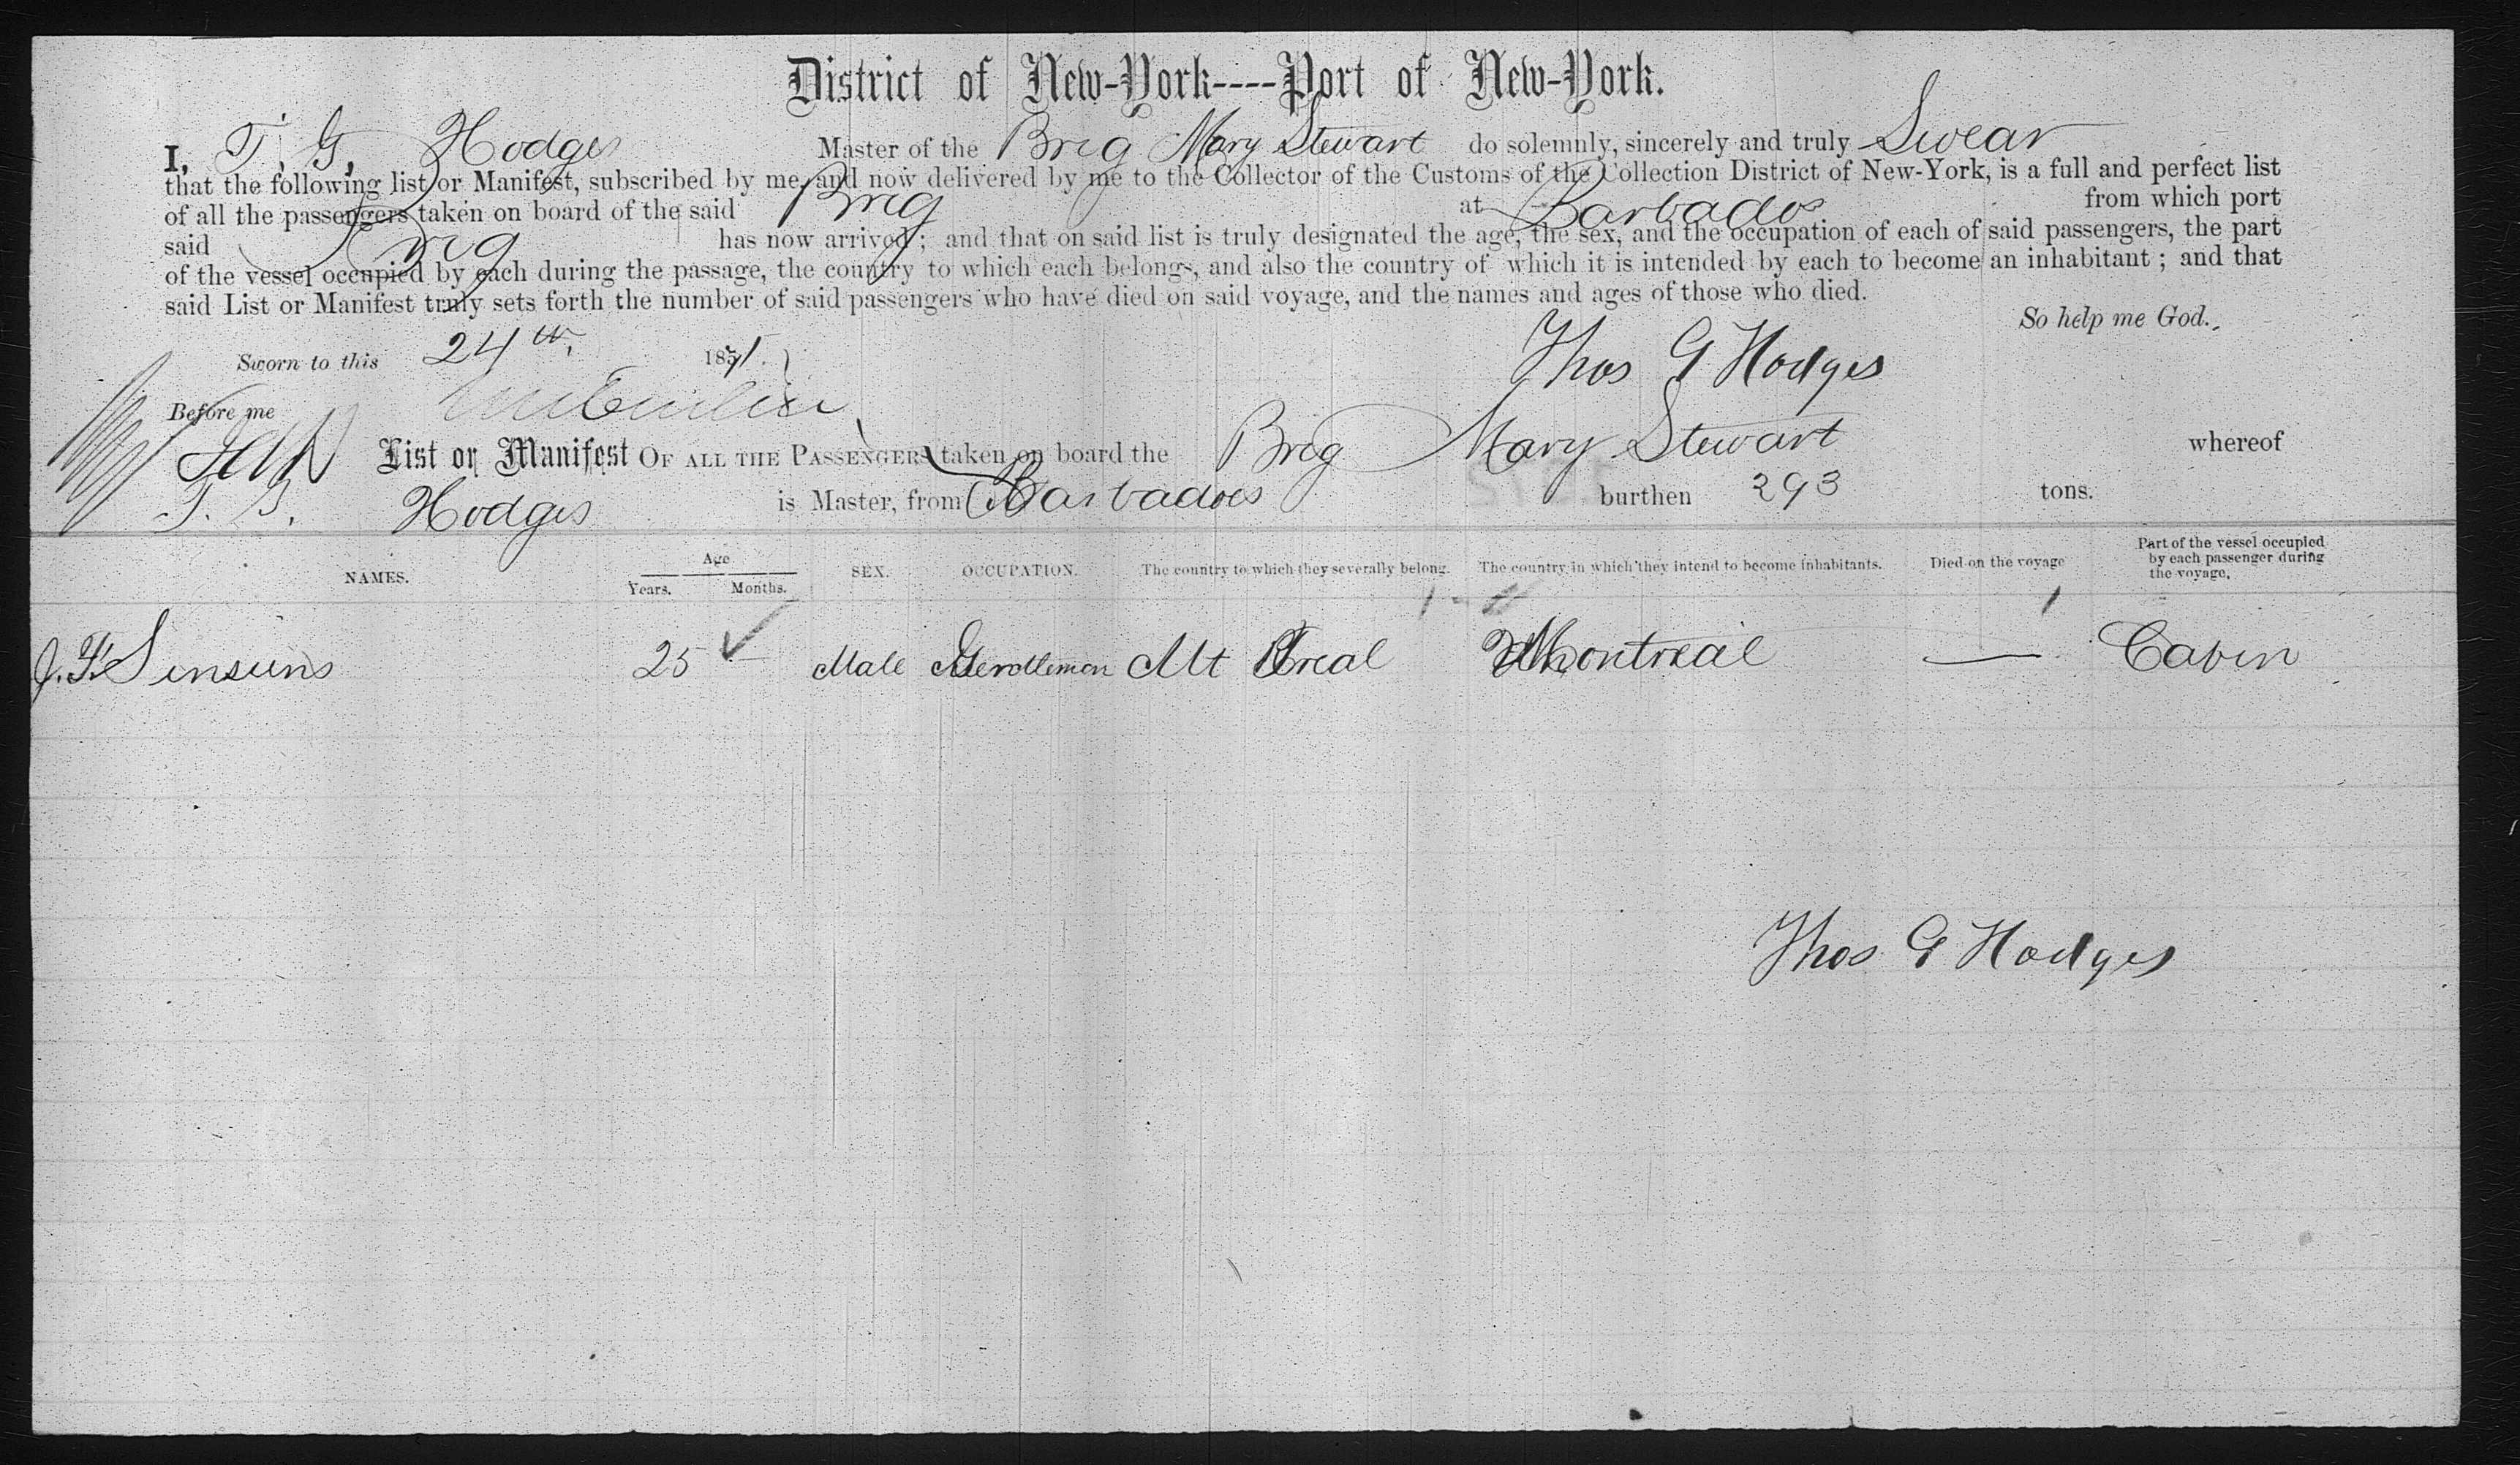 District of New-York----Port of New-York.
I, T. G. Hodges Master of the Brig Mary Stewart do solemnly, sincerely and truly Swear
that the following list or Manifest, subscribed by me, and now delivered by me to the Collector of the Customs of the Collection District of New-York, is a full and perfect list
of all the passengers taken on board of the said Brig at Barbados from which port
said Brig has now arrived; and that on said list is truly designated the age, the sex, and the occupation of each of said passengers, the part
of the vessel occupied by each during the passage, the country to which each belongs, and also the country of which it is intended by each to become an inhabitant; and that
said List or Manifest truly sets forth the number of said passengers who have died on said voyage, and the names and ages of those who died.
So help me God.
Sworn to this 24th.
Thos G Hodges
Before me
List or Manifest OF ALL THE PASSENGERS taken on board the Brig Mary Stewart whereof
T. G. Hodges is Master, from Barbadoes burthen 293 tons.
NAMES. Age Years. Months. SEX. OCCUPATION. The country to which they severally belong. The country in which they intend to become inhabitants. Died on the voyage Part of the vessel occupied by each passenger during the voyage.
25 Male Gentleman Mt Real Montreal — Cabin
Thos G Hodges